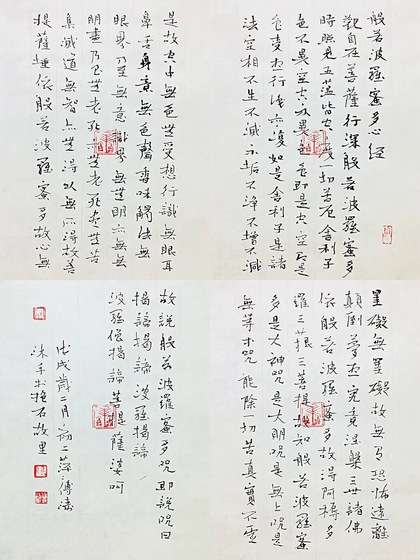 般若波羅蜜多心經
觀自在菩薩行深般若波羅蜜多
時照見五蘊皆空度一切苦厄舍利子
色不異空空不異色色即是空空即是
色受想行識亦復如是舍利子是諸
法空相不生不滅不垢不淨不增不減
是故空中無色無受想行識無眼耳
鼻舌身意無色聲香味觸法無
眼界乃至無意識界無無明亦無無
明盡乃至無老死亦無老死盡無苦
集滅道無智亦無得以無所得故菩
提薩埵依般若波羅蜜多故心無
罣礙無罣礙故無有恐怖遠離
顛倒夢想究竟涅槃三世諸佛
依般若波羅蜜多故得阿耨多
羅三藐三菩提故知般若波羅蜜
多是大神咒是大明咒是無上咒是
無等等咒能除一切苦真實不虛
故說般若波羅蜜多咒即說咒曰
揭諦揭諦波羅揭諦
波羅僧揭諦菩提薩婆訶
戊戌歲二月初二萍傅濤
沐手於抱石故里